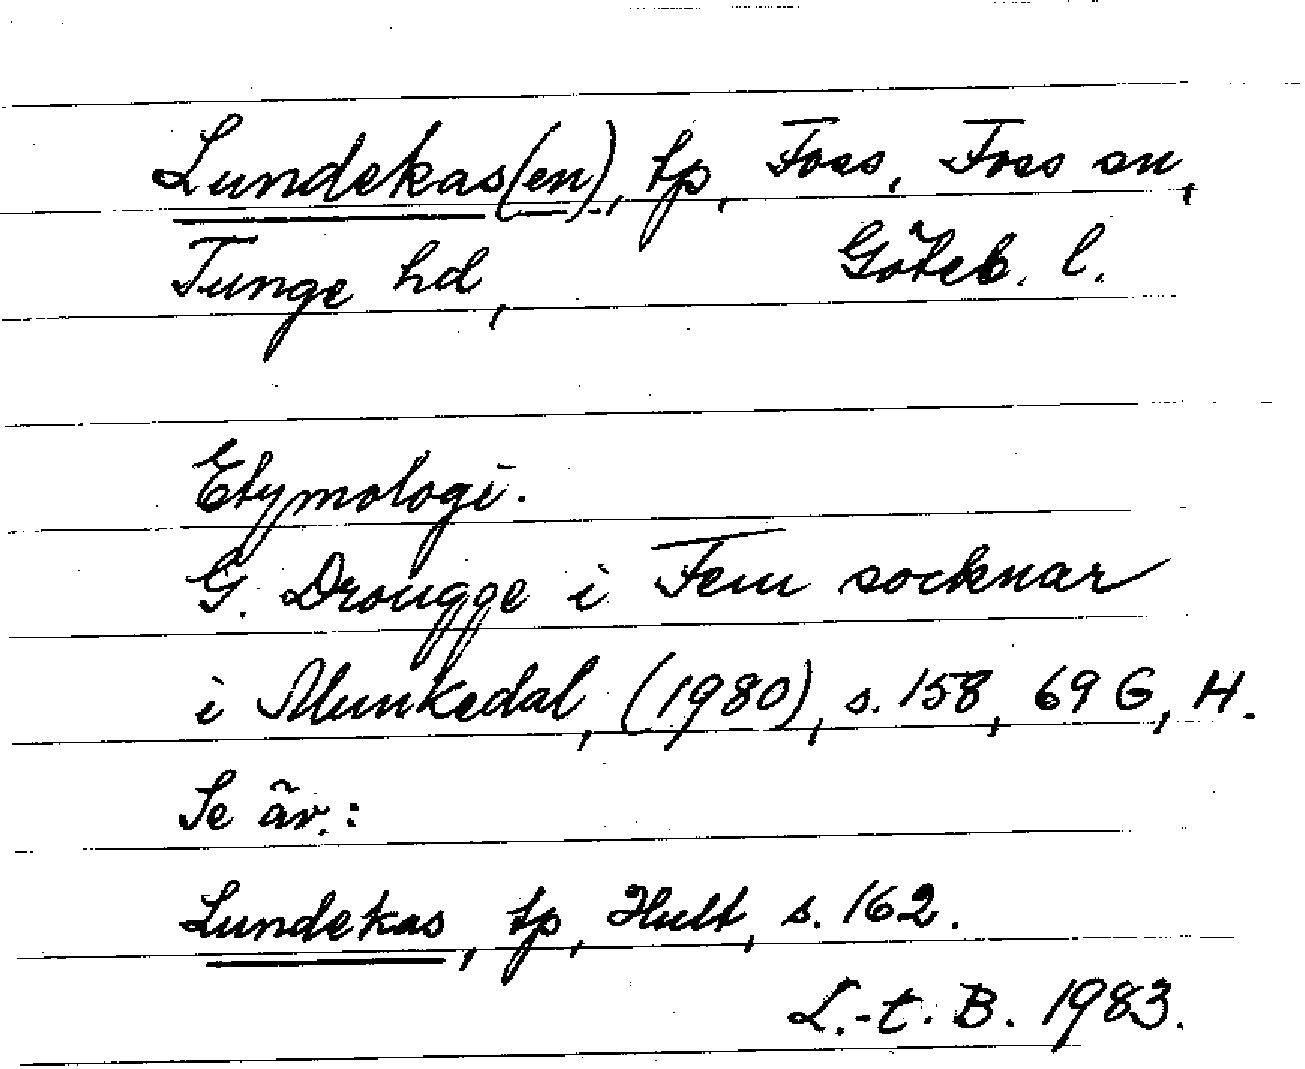 Lundekas(en), tp, Foss, Foss sn,
Tunge hd, Göteb. l.
Etymologi.
G. Drougge i Fem socknar
i Munkedal, (1980), s. 158, 69 G, H.
Se äv.:
Lundekas, tp, Hult, s. 162.
L.-t. B. 1983.